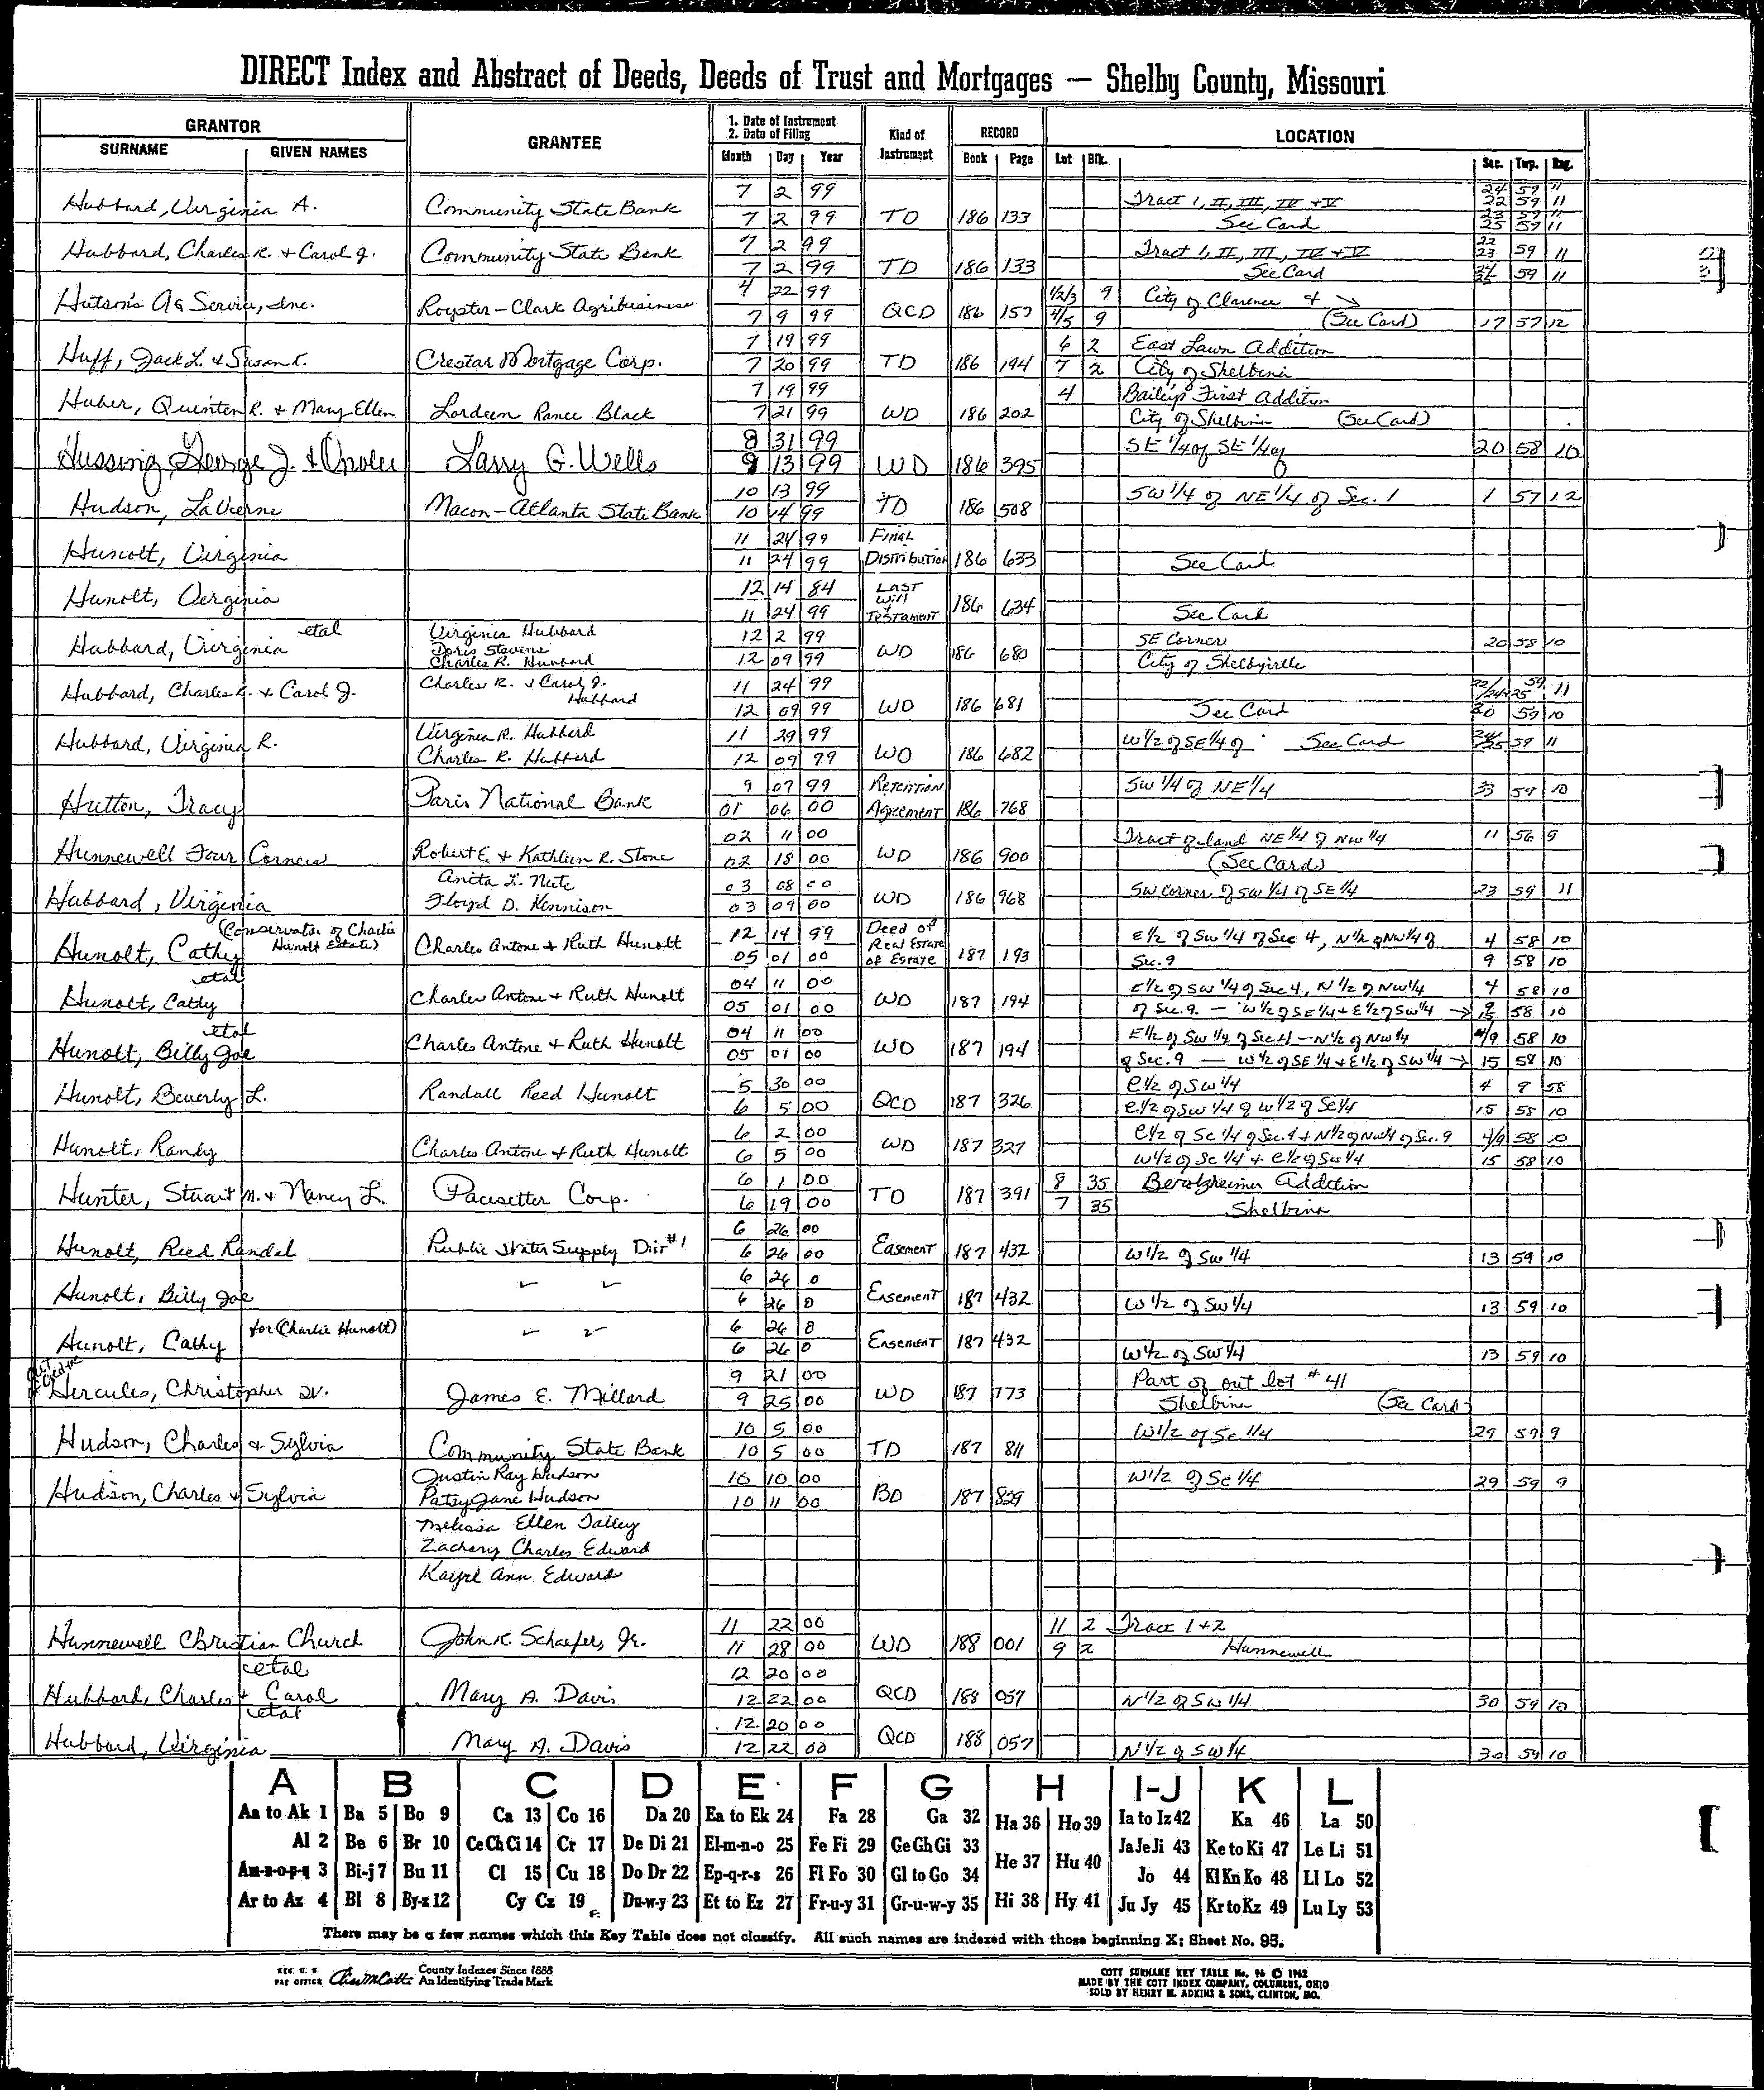 DIRECT Index and Abstract of Deeds, Deeds of Trust and Mortgages — Shelby County, Missouri
GRANTOR GRANTEE 1. Date of Instrument 2. Date of Filing Kind of Instrument RECORD LOCATION
SURNAME GIVEN NAMES Month Day Year Book Page Lot Blk. Sec. Twp. Rng.
7 2 99 Tract 1, II, III, IV + V 24 59 11
Hubbard, Virginia A. Community State Bank 22 59 11
7 2 99 TD 186 133 See Card 23 59 11
25 59 11
7 2 99 Tract 1, II, III, IV + V 22
Hubbard, Charles R. + Carol J. Community State Bank 23 59 11
7 2 99 TD 186 133 See Card 59 11
4 22 99 1/2/3 9 City of Clarence + →
Hutson's AG Service, Inc. Royster-Clark Agribusiness
7 9 99 QCD 186 157 4/5 9 (See Card) 17 57 12
7 19 99 6 2 East Lawn Addition
Huff, Jack L. + Susan K. Crestar Mortgage Corp.
7 20 99 TD 186 194 7 2 City of Shelbina
7 19 99 4 Bailey's First Addition
Huber, Quinten R. + Mary Ellen Lordeen Ranee Black
7 21 99 WD 186 202 City of Shelbina (See Card)
8 31 99 SE 1/4 of SE 1/4 of 20 58 10
Hussing, George J. + Larry G. Wells
9 13 99 WD 186 395
10 13 99 SW 1/4 of NE 1/4 of Sec. 1 1 57 12
Hudson, LaVerne Macon-Atlanta State Bank
10 14 99 TD 186 508
11 24 99 Final
Hunolt, Virginia
11 24 99 Distribution 186 633 See Card
12 14 84 Last Will +
Hunolt, Verginia
11 24 99 Testament 186 634 See Card
etal Virginia Hubbard 12 2 99 SE Corner 20 58 10
Hubbard, Virginia Doris Stevens WD 186 680
Charles R. Hubbard 12 09 99 City of Shelbyville
Charles R. + Carol J. 11 24 99 59 11
Hubbard, Charles R. + Carol J. Hubbard
12 09 99 WD 186 681 See Card 59 10
Virginia R. Hubbard 11 29 99 W 1/2 of SE 1/4 of See Card 59 11
Hubbard, Virginia R.
Charles R. Hubbard 12 09 99 WD 186 682
9 07 99 Retention SW 1/4 of NE 1/4 33 59 10
Hutton, Tracy Paris National Bank
01 06 00 Agreement 186 768
02 11 00 Tract of land NE 1/4 of NW 1/4 11 56 9
Hunnewell Four Corners Robert E. + Kathleen R. Stone
02 18 00 WD 186 900 (See Card)
Anita L. Nute 03 08 00 SW Corner of SW 1/4 of SE 1/4 23 59 11
Hubbard, Virginia
Floyd D. Kennison 03 09 00 WD 186 968
(Conservator of Charlie Hunolt Estate) 12 14 99 Deed of Real Estate of Estate E 1/2 of SW 1/4 of Sec 4, N 1/2 of NW 1/4 of 4 58 10
Hunolt, Cathy Charles Antone + Ruth Hunolt
05 01 00 187 193 Sec. 9 9 58 10
etal 04 11 00 E 1/2 of SW 1/4 of Sec 4, N 1/2 of NW 1/4 4 58 10
Hunolt, Cathy Charles Antone + Ruth Hunolt
05 01 00 WD 187 194 of Sec. 9. — W 1/2 of SE 1/4 + E 1/2 of SW 1/4 → 58 10
etal 04 11 00 E 1/2 of SW 1/4 of Sec 4 — N 1/2 of NW 1/4 4/9 58 10
Hunolt, Billy Joe Charles Antone + Ruth Hunolt
05 01 00 WD 187 194 of Sec. 9 — W 1/2 of SE 1/4 + E 1/2 of SW 1/4 → 15 58 10
5 30 00 E 1/2 of SW 1/4 4 9 58
Hunolt, Beverly L. Randall Reed Hunolt
6 5 00 QCD 187 326 E 1/2 of SW 1/4 of W 1/2 of SE 1/4 15 58 10
6 2 00 E 1/2 of SE 1/4 of Sec. 4 + N 1/2 of NW 1/4 of Sec. 9 4/9 58 10
Hunolt, Randy Charles Antone + Ruth Hunolt
6 5 00 WD 187 327 W 1/2 of SE 1/4 + E 1/2 of SW 1/4 15 58 10
6 1 00 8 35 Berolzheimer Addition
Hunter, Stuart M. + Nancy L. Pacesetter Corp.
6 19 00 TD 187 391 7 35 Shelbina
6 26 00
Hunolt, Reed Randal Public Water Supply Dist #1
6 26 00 Easement 187 432 W 1/2 of SW 1/4 13 59 10
6 26 0
Hunolt, Billy Joe
6 26 0 Easement 187 432 W 1/2 of SW 1/4 13 59 10
for (Charlie Hunolt) 6 26 0
Hunolt, Cathy
6 26 0 Easement 187 432 W 1/2 of SW 1/4 13 59 10
9 21 00 Part of out lot #41
Hercules, Christopher W. James E. Millard
9 25 00 WD 187 773 Shelbina (See Card)
10 5 00 W 1/2 of SE 1/4 29 59 9
Hudson, Charles + Sylvia Community State Bank
10 5 00 TD 187 811
Justin Ray Hudson 10 10 00 W 1/2 of SE 1/4 29 59 9
Hudson, Charles + Sylvia
Patsy Jane Hudson 10 11 00 BD 187 829
Melissa Ellen Talley
Zachery Charles Edward
Ann Edward
11 22 00 11 2 Tract 1+2
Hunnewell Christian Church John K. Schaefer, Jr.
11 28 00 WD 188 001 9 2 Hunnewell
etal 12 20 00
Hubbard, Charles + Carol Mary A. Davis
12 22 00 QCD 188 057 N 1/2 of SW 1/4 30 59 10
etal 12 20 00
Hubbard, Virginia Mary A. Davis
12 22 00 QCD 188 057 N 1/2 of SW 1/4 30 59 10
A B C D E F G H I-J K L
Aa to Ak 1 Ba 5 Bo 9 Ca 13 Co 16 Da 20 Ea to Ek 24 Fa 28 Ga 32 Ha 36 Ho 39 Ia to Iz 42 Ka 46 La 50
Al 2 Be 6 Br 10 Ce Ch Ci 14 Cr 17 De Di 21 El-m-n-o 25 Fe Fi 29 Ge Gh Gi 33 He 37 Hu 40 Ja Je Ji 43 Ke to Ki 47 Le Li 51
Am-n-o-p-q 3 Bi-j 7 Bu 11 Cl 15 Cu 18 Do Dr 22 Ep-q-r-s 26 Fl Fo 30 Gl to Go 34 Jo 44 Kl Kn Ko 48 Ll Lo 52
Ar to Az 4 Bl 8 By-z 12 Cy Cz 19 Du-w-y 23 Et to Ez 27 Fr-u-y 31 Gr-u-w-y 35 Hi 38 Hy 41 Ju Jy 45 Kr to Kz 49 Lu Ly 53
There may be a few names which this Key Table does not classify. All such names are indexed with those beginning X; Sheet No. 95.
REG. U. S. PAT OFFICE County Indexes Since 1888 An Identifying Trade Mark
COTT SURNAME KEY TABLE No. 96 © 1962
MADE BY THE COTT INDEX COMPANY, COLUMBUS, OHIO
SOLD BY HENRY M. ADKINS & SONS, CLINTON, MO.